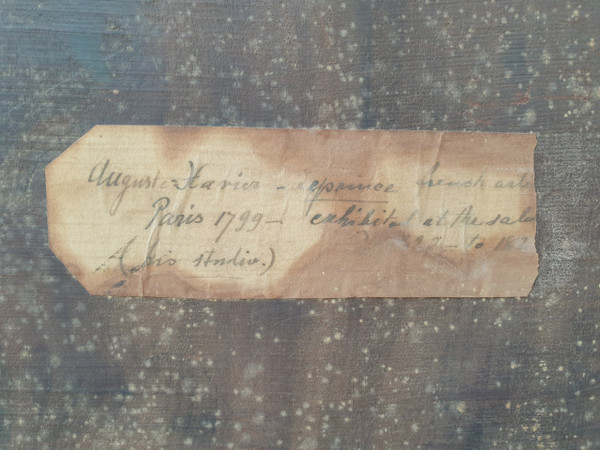 Auguste Xavier - Leprince french arti
Paris 1799 - exhibited at the salo
1827 - to 182
(his studio.)